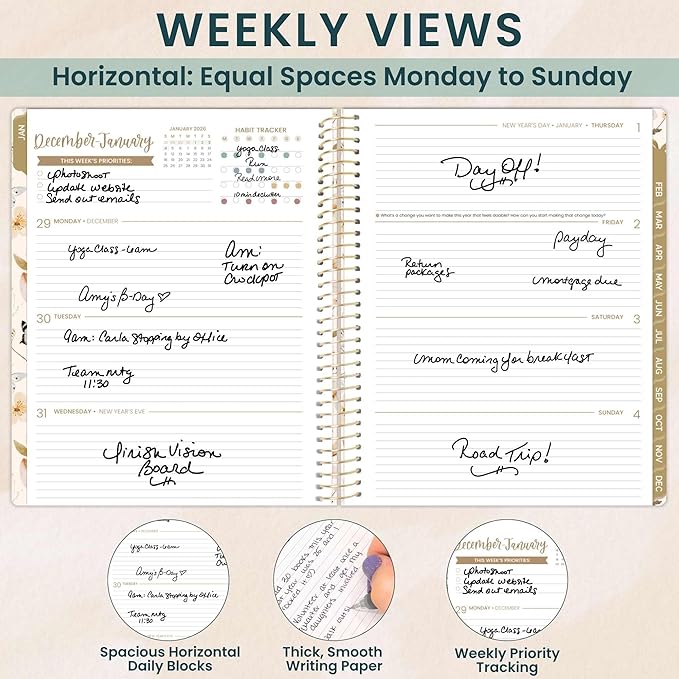 WEEKLY VIEWS
Horizontal: Equal Spaces Monday to Sunday
JAN
December-January
THIS WEEK'S PRIORITIES:
photoshoot
update website
Send out emails
JANUARY 2026
S M T W T F S
HABIT TRACKER
M T W T F S S
yoga class
Run
Read more
10 min declutter
29 MONDAY • DECEMBER
Yoga Class - 6am
Am:
Turn on
Crockpot
Amy's B-Day ♡
30 TUESDAY
9am: Carla stopping by office
Team mtg
11:30
31 WEDNESDAY • NEW YEAR'S EVE
Finish Vision
Board
NEW YEAR'S DAY • JANUARY • THURSDAY 1
Day Off!
What's a change you want to make this year that feels doable? How can you start making that change today?
FRIDAY 2
payday
Return
packages
mortgage due
SATURDAY 3
mom coming for breakfast
SUNDAY 4
Road Trip!
FEB
MAR
APR
MAY
JUN
JUL
AUG
SEP
OCT
NOV
DEC
Yoga Class - 6am
Amy's B-Day ♡
30 TUESDAY
9am: Carla stopping by office
Team mtg
11:30
Spacious Horizontal
Daily Blocks
30 books this year
Volunteer at least once a
quarter and get my
daughters involved
Thick, Smooth
Writing Paper
December-January
THIS WEEK'S PRIORITIES:
photoshoot
update website
Send out emails
29 MONDAY • DECEMBER
Yoga Class - 6am
Weekly Priority
Tracking